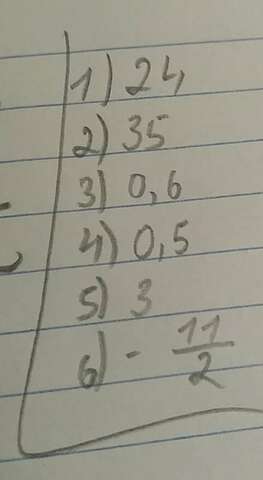 1) 24
2) 35
3) 0,6
4) 0,5
5) 3
6) - 11/2